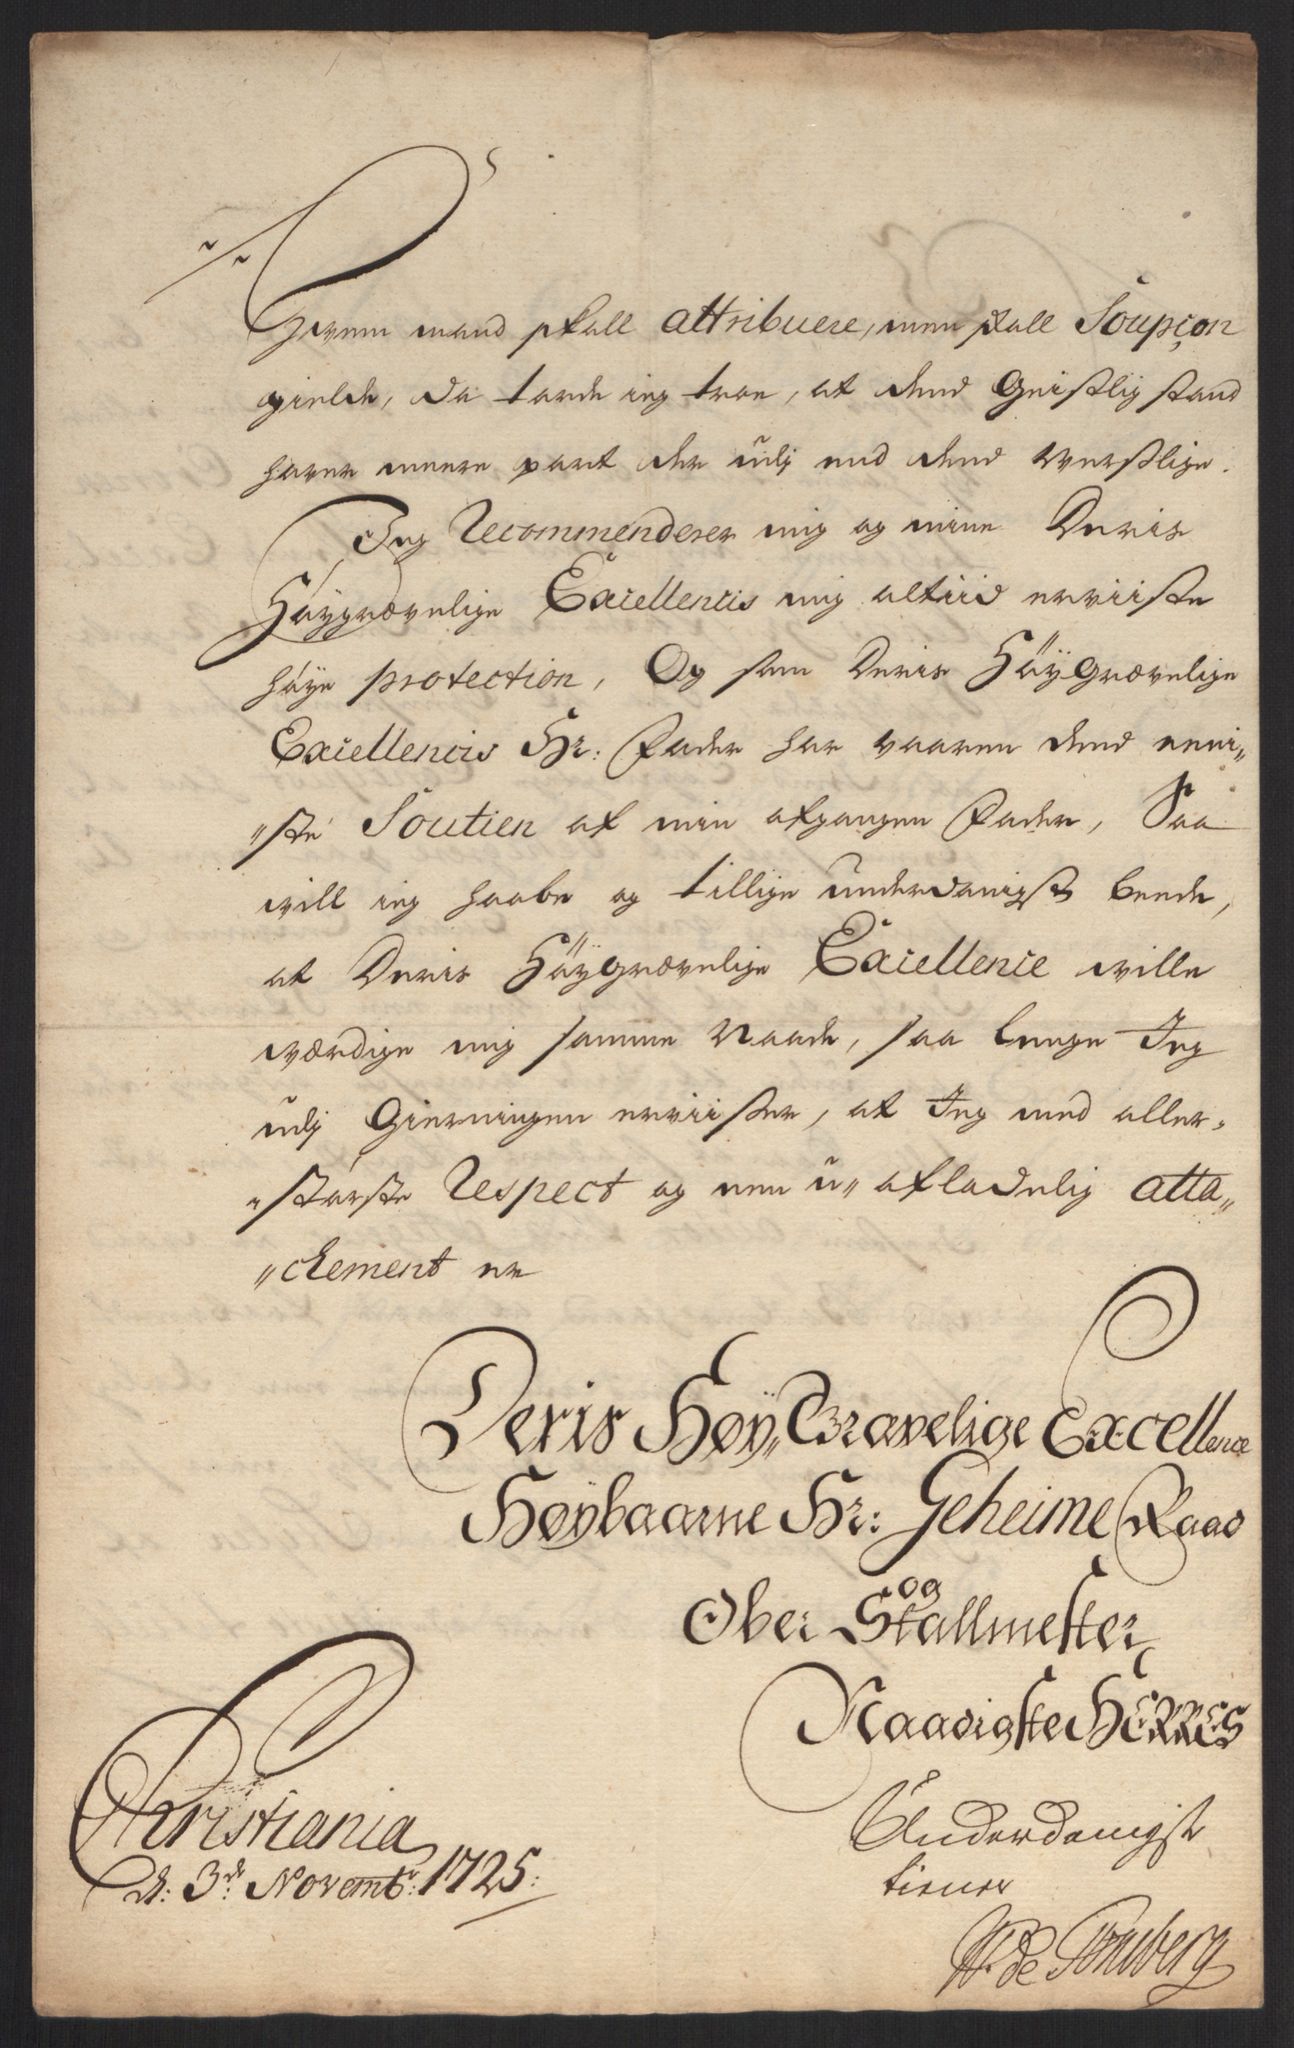 hvem mand skall attribuere, men skall Soupçon
gielde, da torde ieg troe, at dend Geistlig stand
haver meere part der udj end dend Verslige.
Jeg Recommenderer mig og mine Deris
Høÿgrævelige Excellencis mig altiid erviiste
høÿe protection, Og som Deris Høÿgrævelige
Excellencis Hr: Fader har vaaren dend eeni„
„ste Soutien af min afgangen Fader, Saa
will ieg haabe og tillige underdanigst beede,
at Deris Høÿgrævelige Excellence wille
værdige mig samme Naade, saa lenge Jeg
udj Gierningen erviister, at Jeg med aller„
„største Respect og een u„afladelig atta„
„chement er
Deris Høÿ„Grævelige Excellence
Høÿbaarne Hr: Geheime Raad
og
Ober Stallmester
Naadigste HERRES
Underdanigste
tiener
de
Christiania
d: 3d: Novembr: 1725: